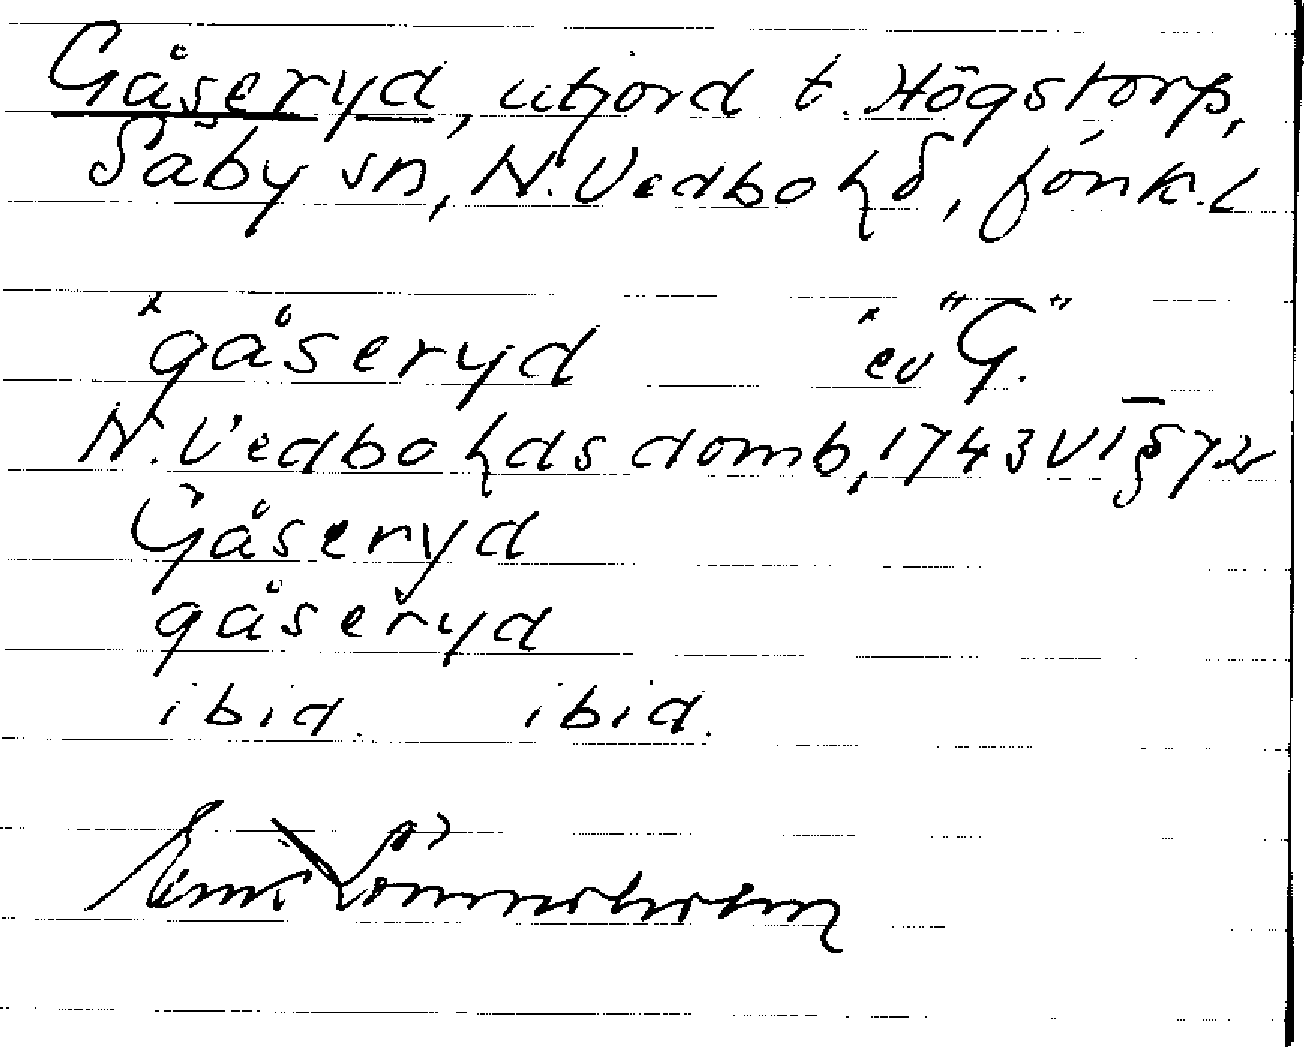 Gåseryd, utjord t. Högstorp,
Säby sn, N. Vedbo hd, Jönk. l
gåseryd ev "G."
N. Vedbo hds domb, 1743 VI § 72
Gåseryd
gåseryd
ibid. ibid.